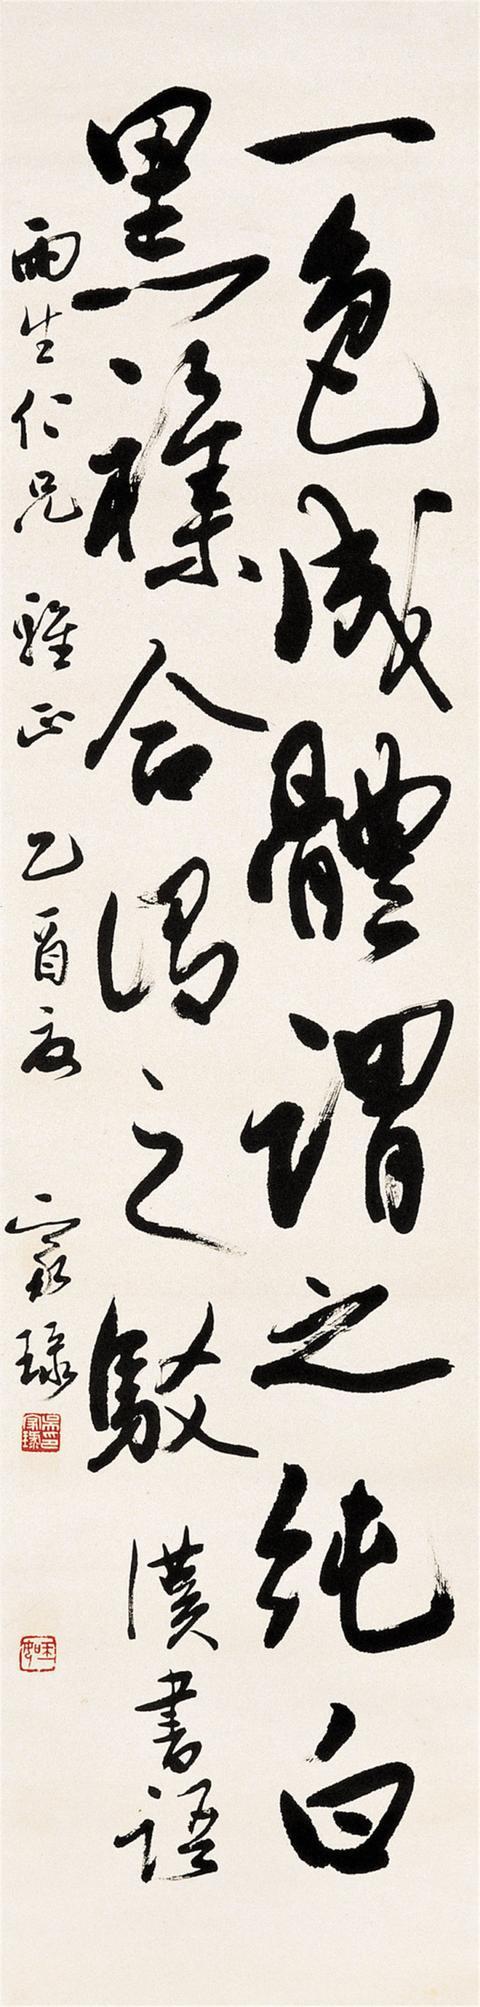 一色成體謂之純白
黑襍合謂之駁 漢書語
雨生仁兄 雅正 乙酉夏 家琭